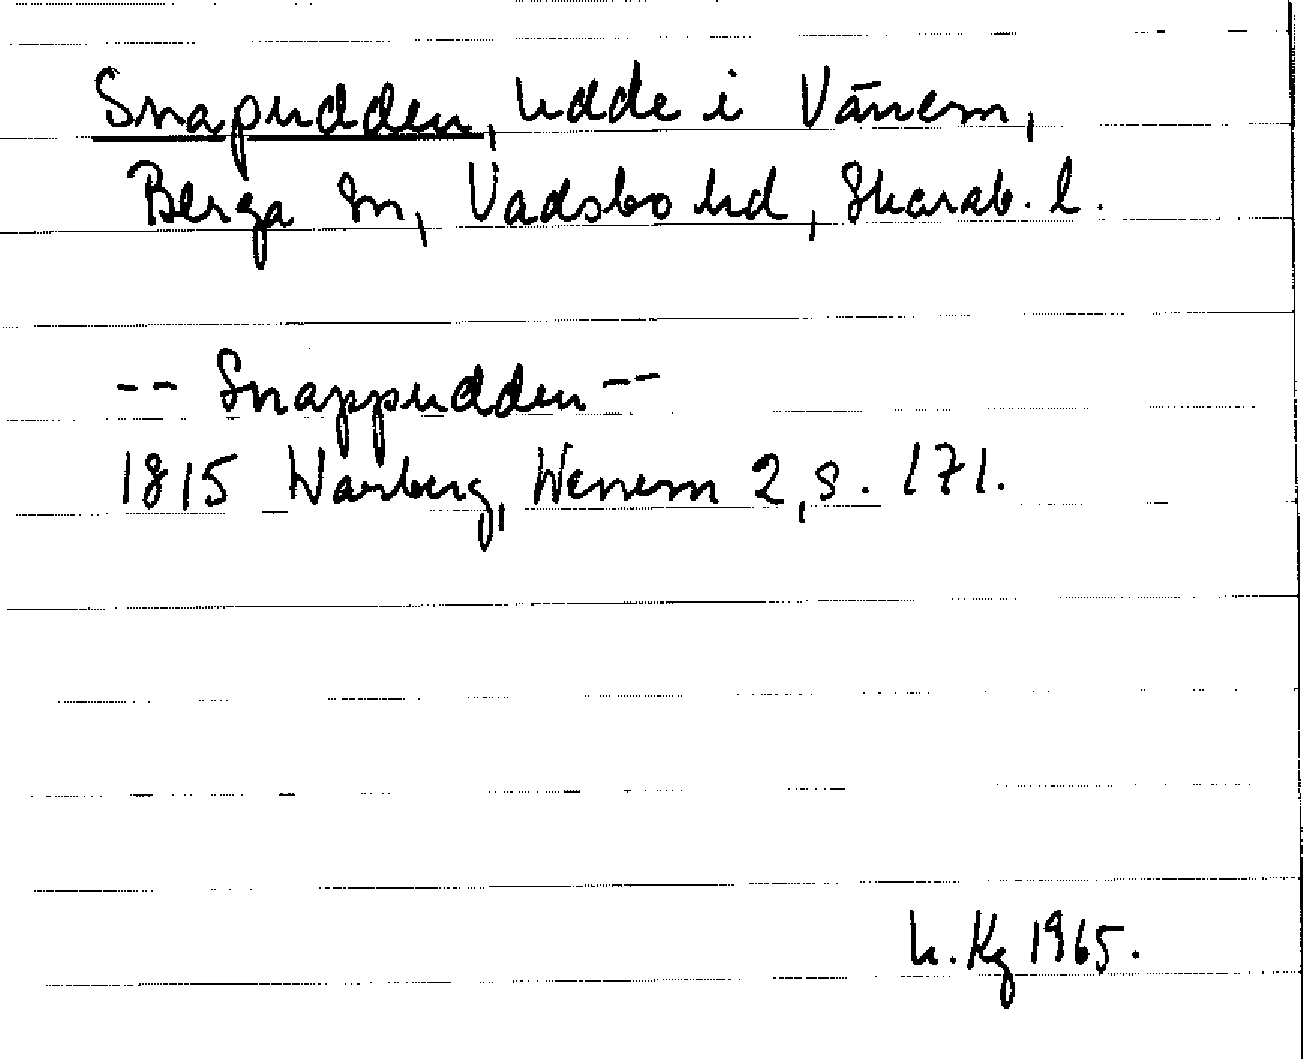 Snapudden, udde i Vänern,
Berga sn, Vadsbo hd, Skarab. l.
-- Snappudden --
1815 Warberg, Wenern 2, s. 171.
h. Kg 1965.